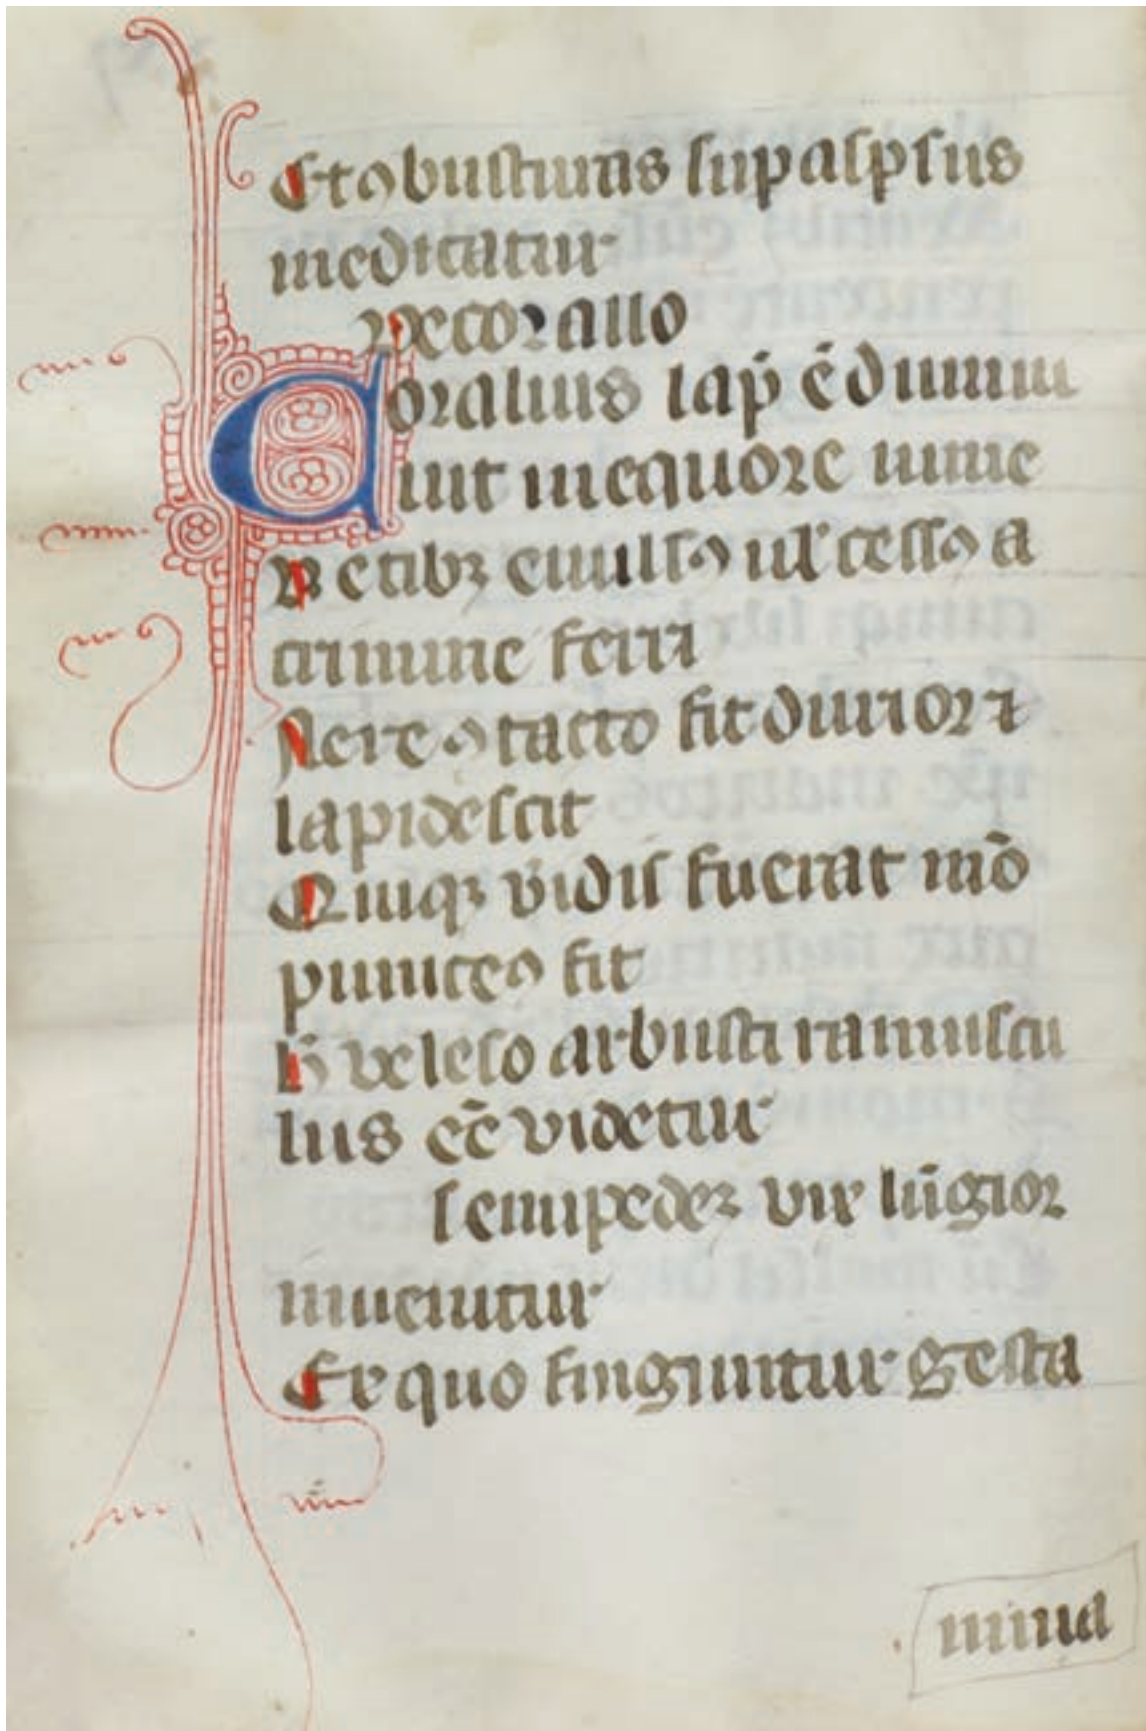 Et ꝯbustiuas sup aspsus
meditatur
De corallo
Coralius lap̄ ē dum iu
iuit in equore uime
Retibꝫ euulsꝯ ul' cessꝯ a
cimine ferri
Aere ꝯtacto fit durior ⁊
lapidescit
Quiqꝫ viridis fuerat mō
puniceꝯ fit
H̄ veleso arbusti ramuscu
lus eē videtur
semipedeꝫ vix lūgior
inuenitur
Ex quo finguntur gesta
mina